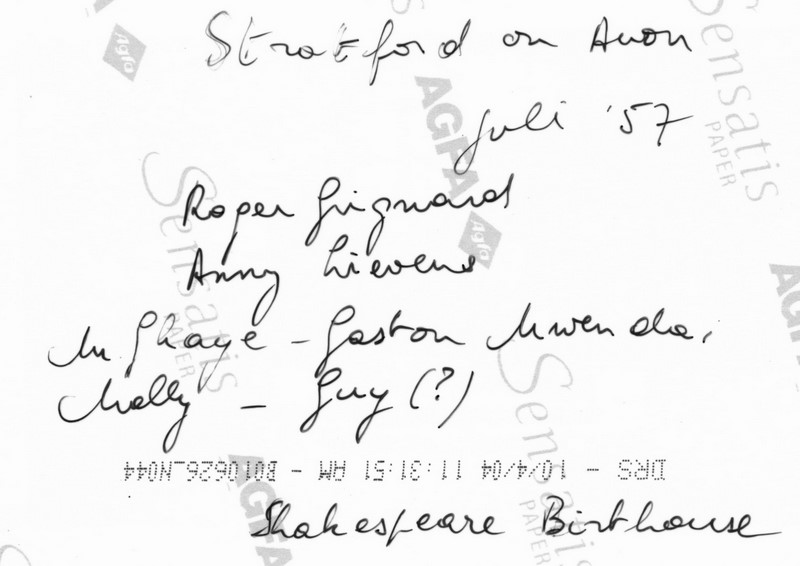 Stratford on Avon
Juli '57
Roger Grignard
Anny Lievens
Mr Ghaye - Gaston Mwenda,
Molly - Guy (?)
DRS - 10/4/04 11:31:51 AM - B010626_N044
Shakespeare Birthouse
AGFA
Agfa
Sensatis
PAPER